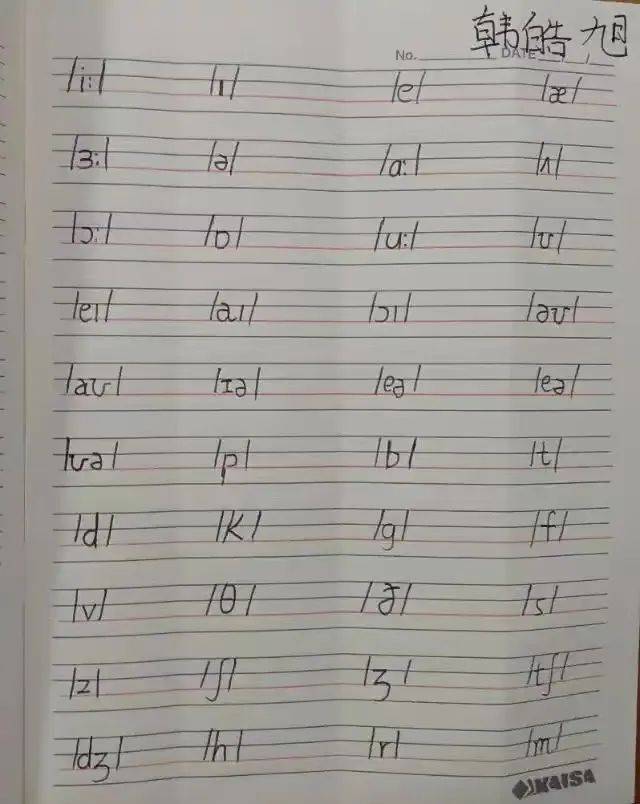 韩皓旭
No. DATE
/iː/ /ɪ/ /e/ /æ/
/ɜː/ /ə/ /ɑː/ /ʌ/
/ɔː/ /ɒ/ /uː/ /ʊ/
/eɪ/ /aɪ/ /ɔɪ/ /əʊ/
/aʊ/ /ɪə/ /eə/ /eə/
/ʊə/ /p/ /b/ /t/
/d/ /k/ /g/ /f/
/v/ /θ/ /ð/ /s/
/z/ /ʃ/ /ʒ/ /tʃ/
/dʒ/ /h/ /r/ /m/
KAISA